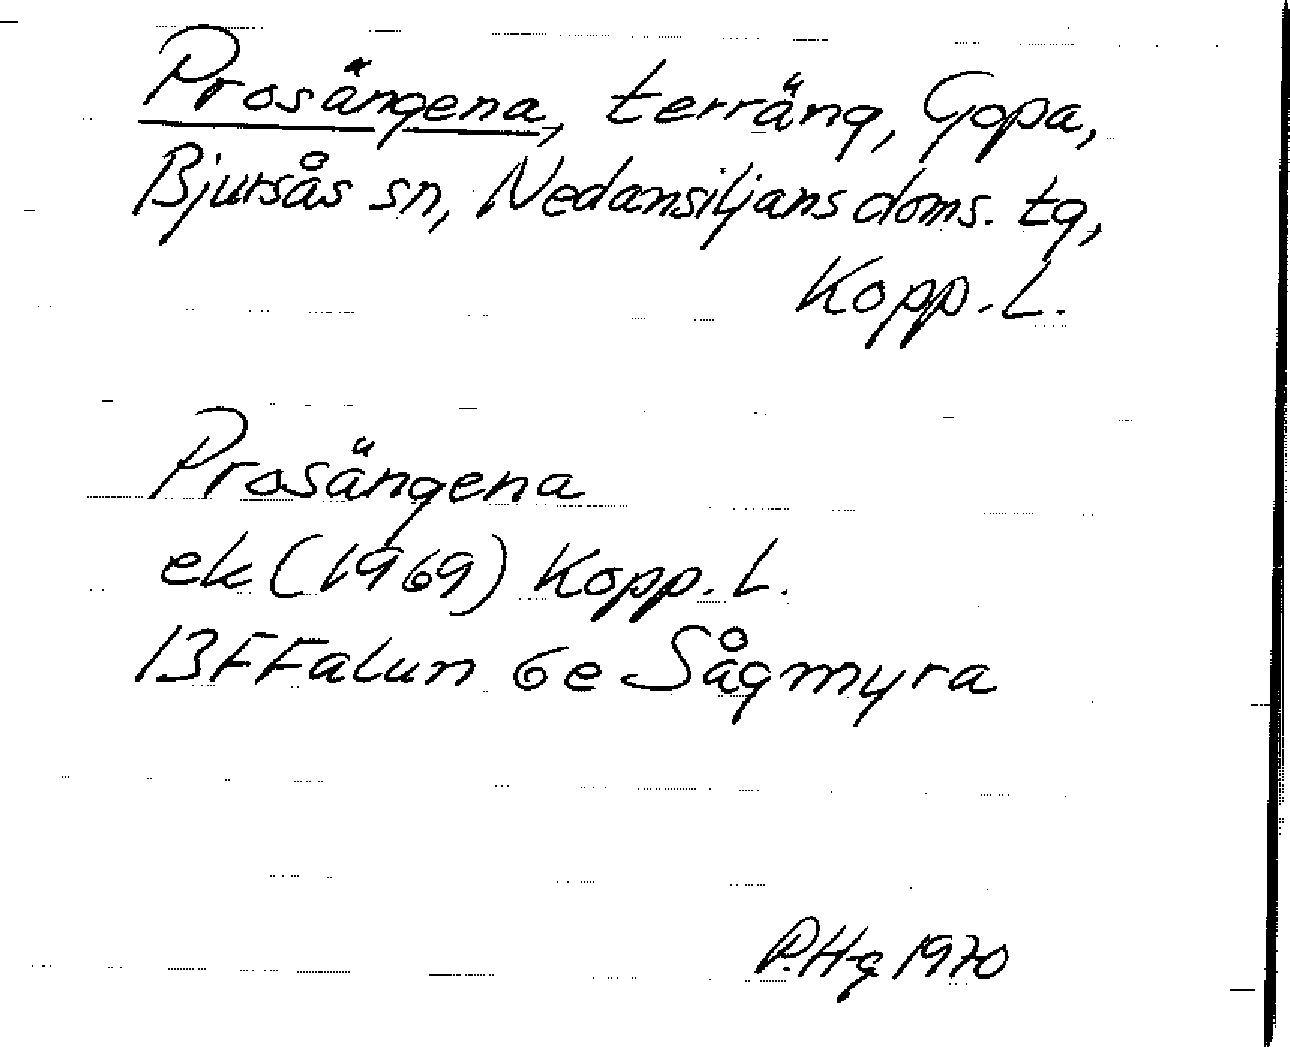 Prosängena, terräng, Gopa,
Bjursås sn, Nedansiljans doms. tg,
Kopp. L.
Prosängena
ek (1969) Kopp. L.
13F Falun 6e Sågmyra
P. Hg 1970